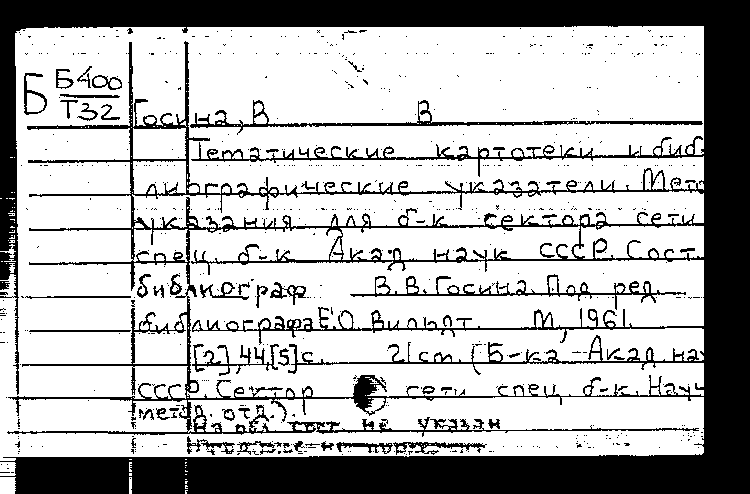 Б Б400
Т32
Госина, В В
Тематические картотеки и биб
лиографические указатели. Мето
указания для б-к сектора сети
спец. б-к Акад. наук СССР. Сост.
библиограф В.В. Госина. Под ред.
библиографа Е.О. Вильдт. М., 1961.
[2], 44, [5] с. 21 ст. (Б-ка Акад. нау
СССР. Сектор сети спец. б-к. Науч
метод. отд.).
На обл. сост. не указан